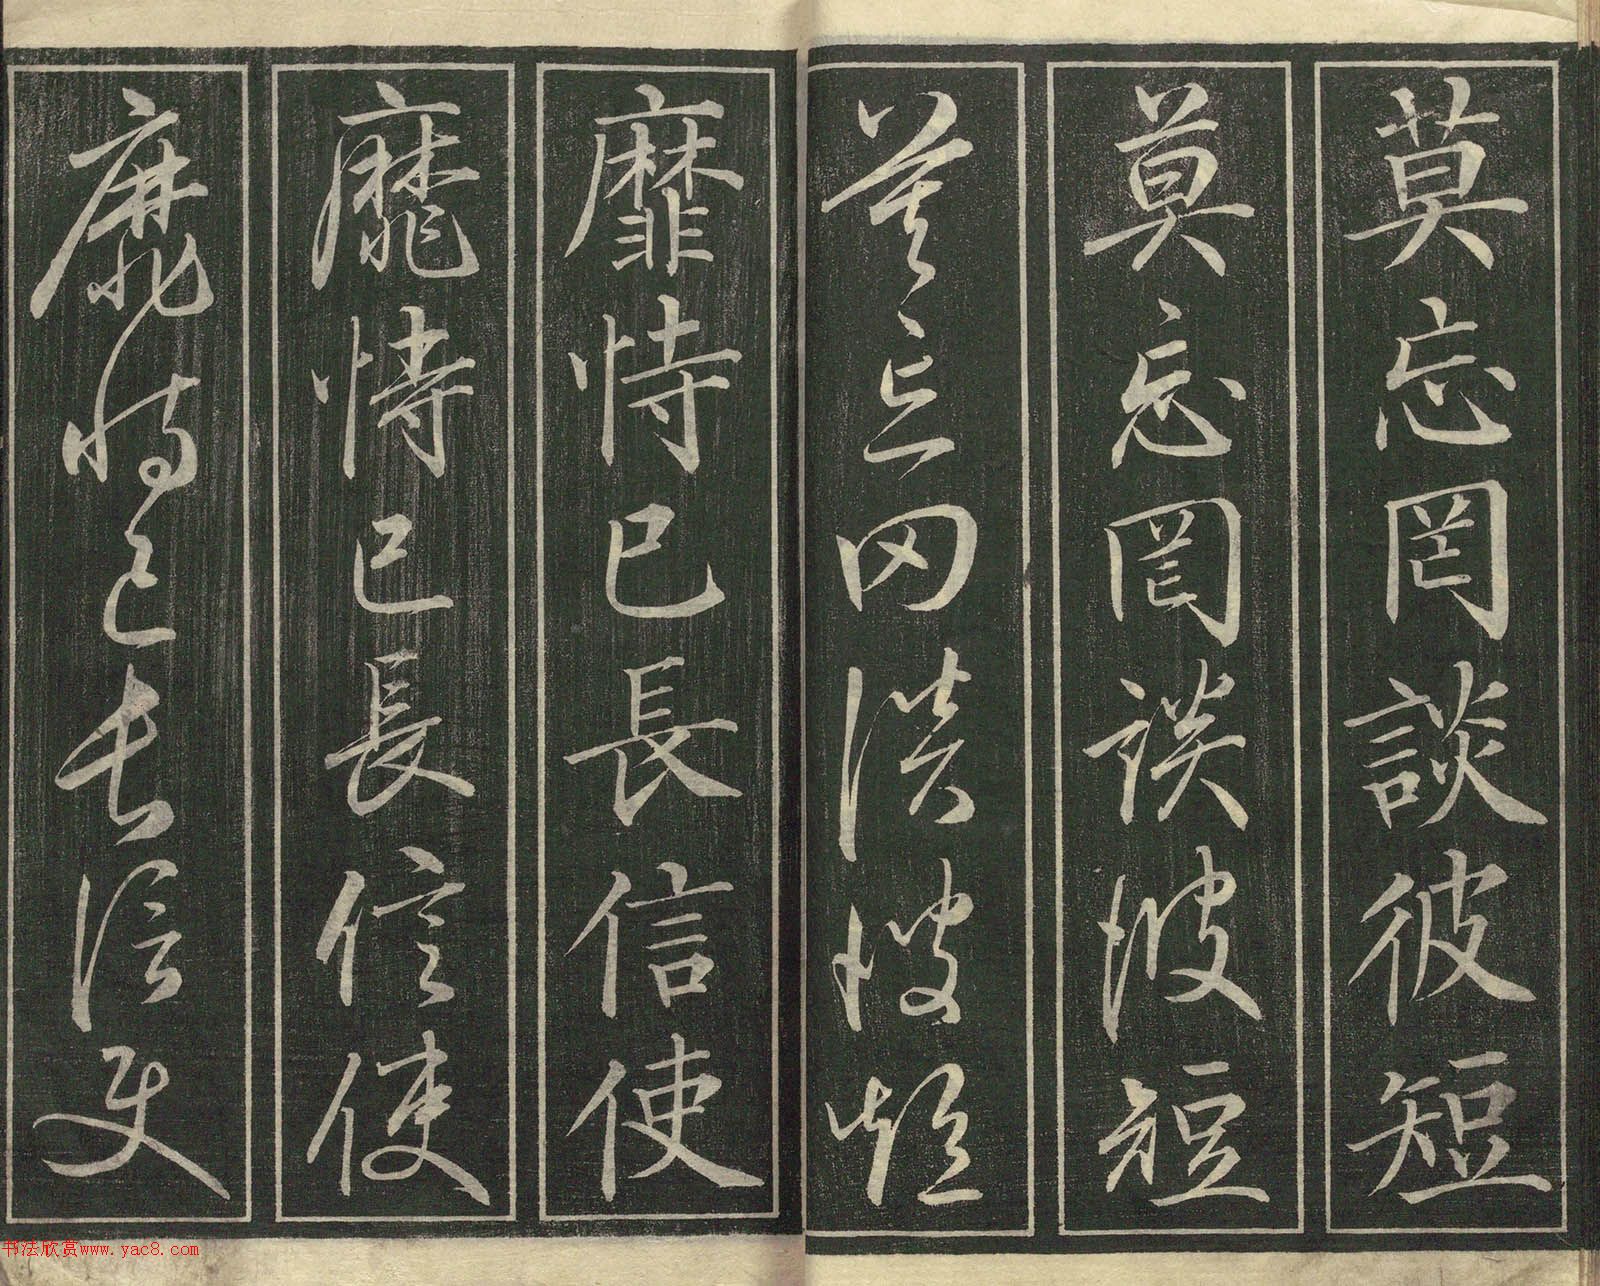 莫忘罔談彼短
莫忘罔談彼短
莫忘罔談彼短
靡恃已長信使
靡恃已長信使
靡恃已長信使
书法欣赏www.yac8.com